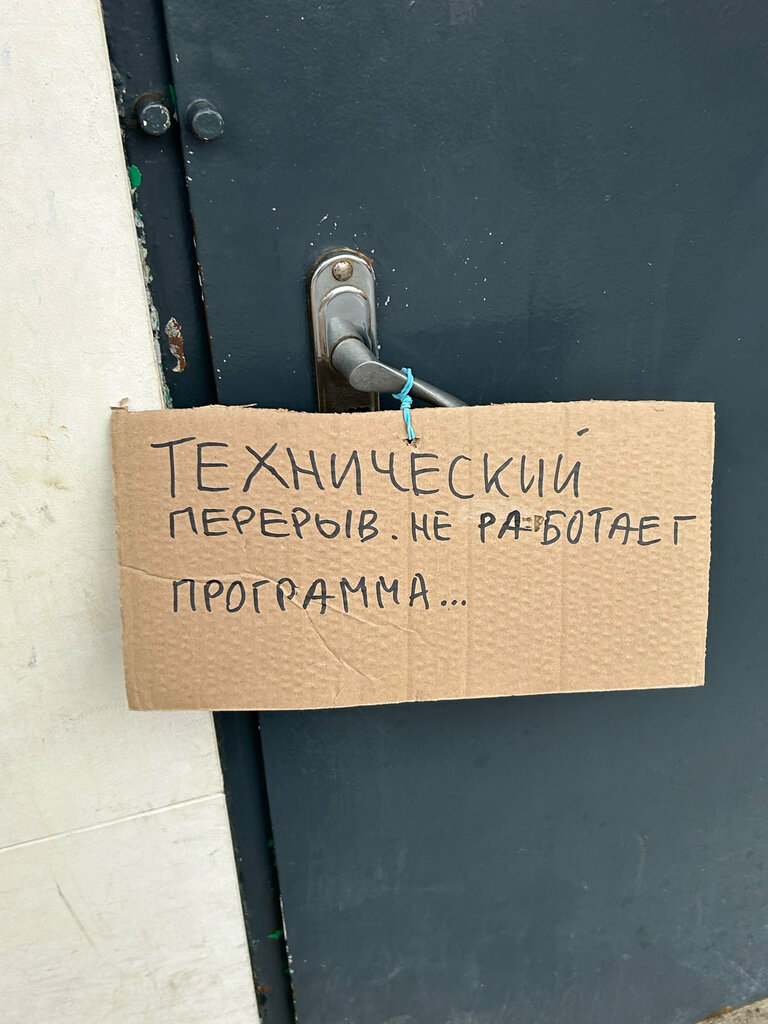 ТЕХНИЧЕСКИЙ
ПЕРЕРЫВ. НЕ РАБОТАЕТ
ПРОГРАММА...